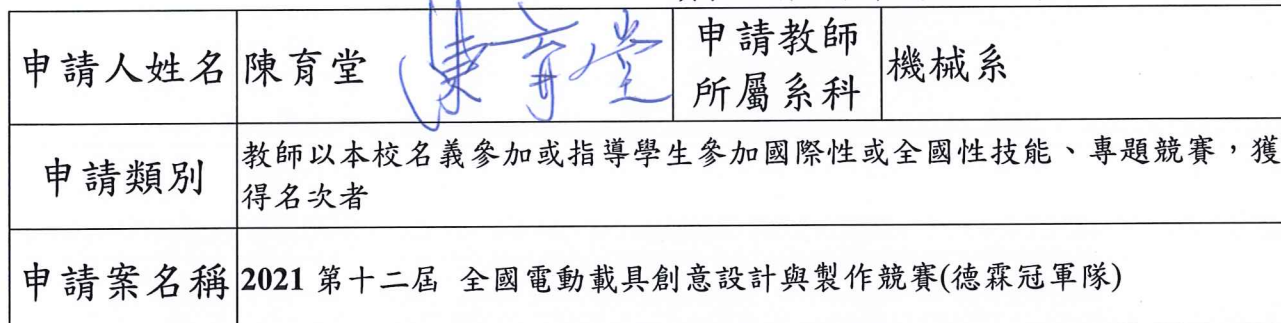 申請人姓名 陳育堂 陳育堂 申請教師所屬系科 機械系
申請類別 教師以本校名義參加或指導學生參加國際性或全國性技能、專題競賽,獲
得名次者
申請案名稱 2021 第十二屆 全國電動載具創意設計與製作競賽(德霖冠軍隊)